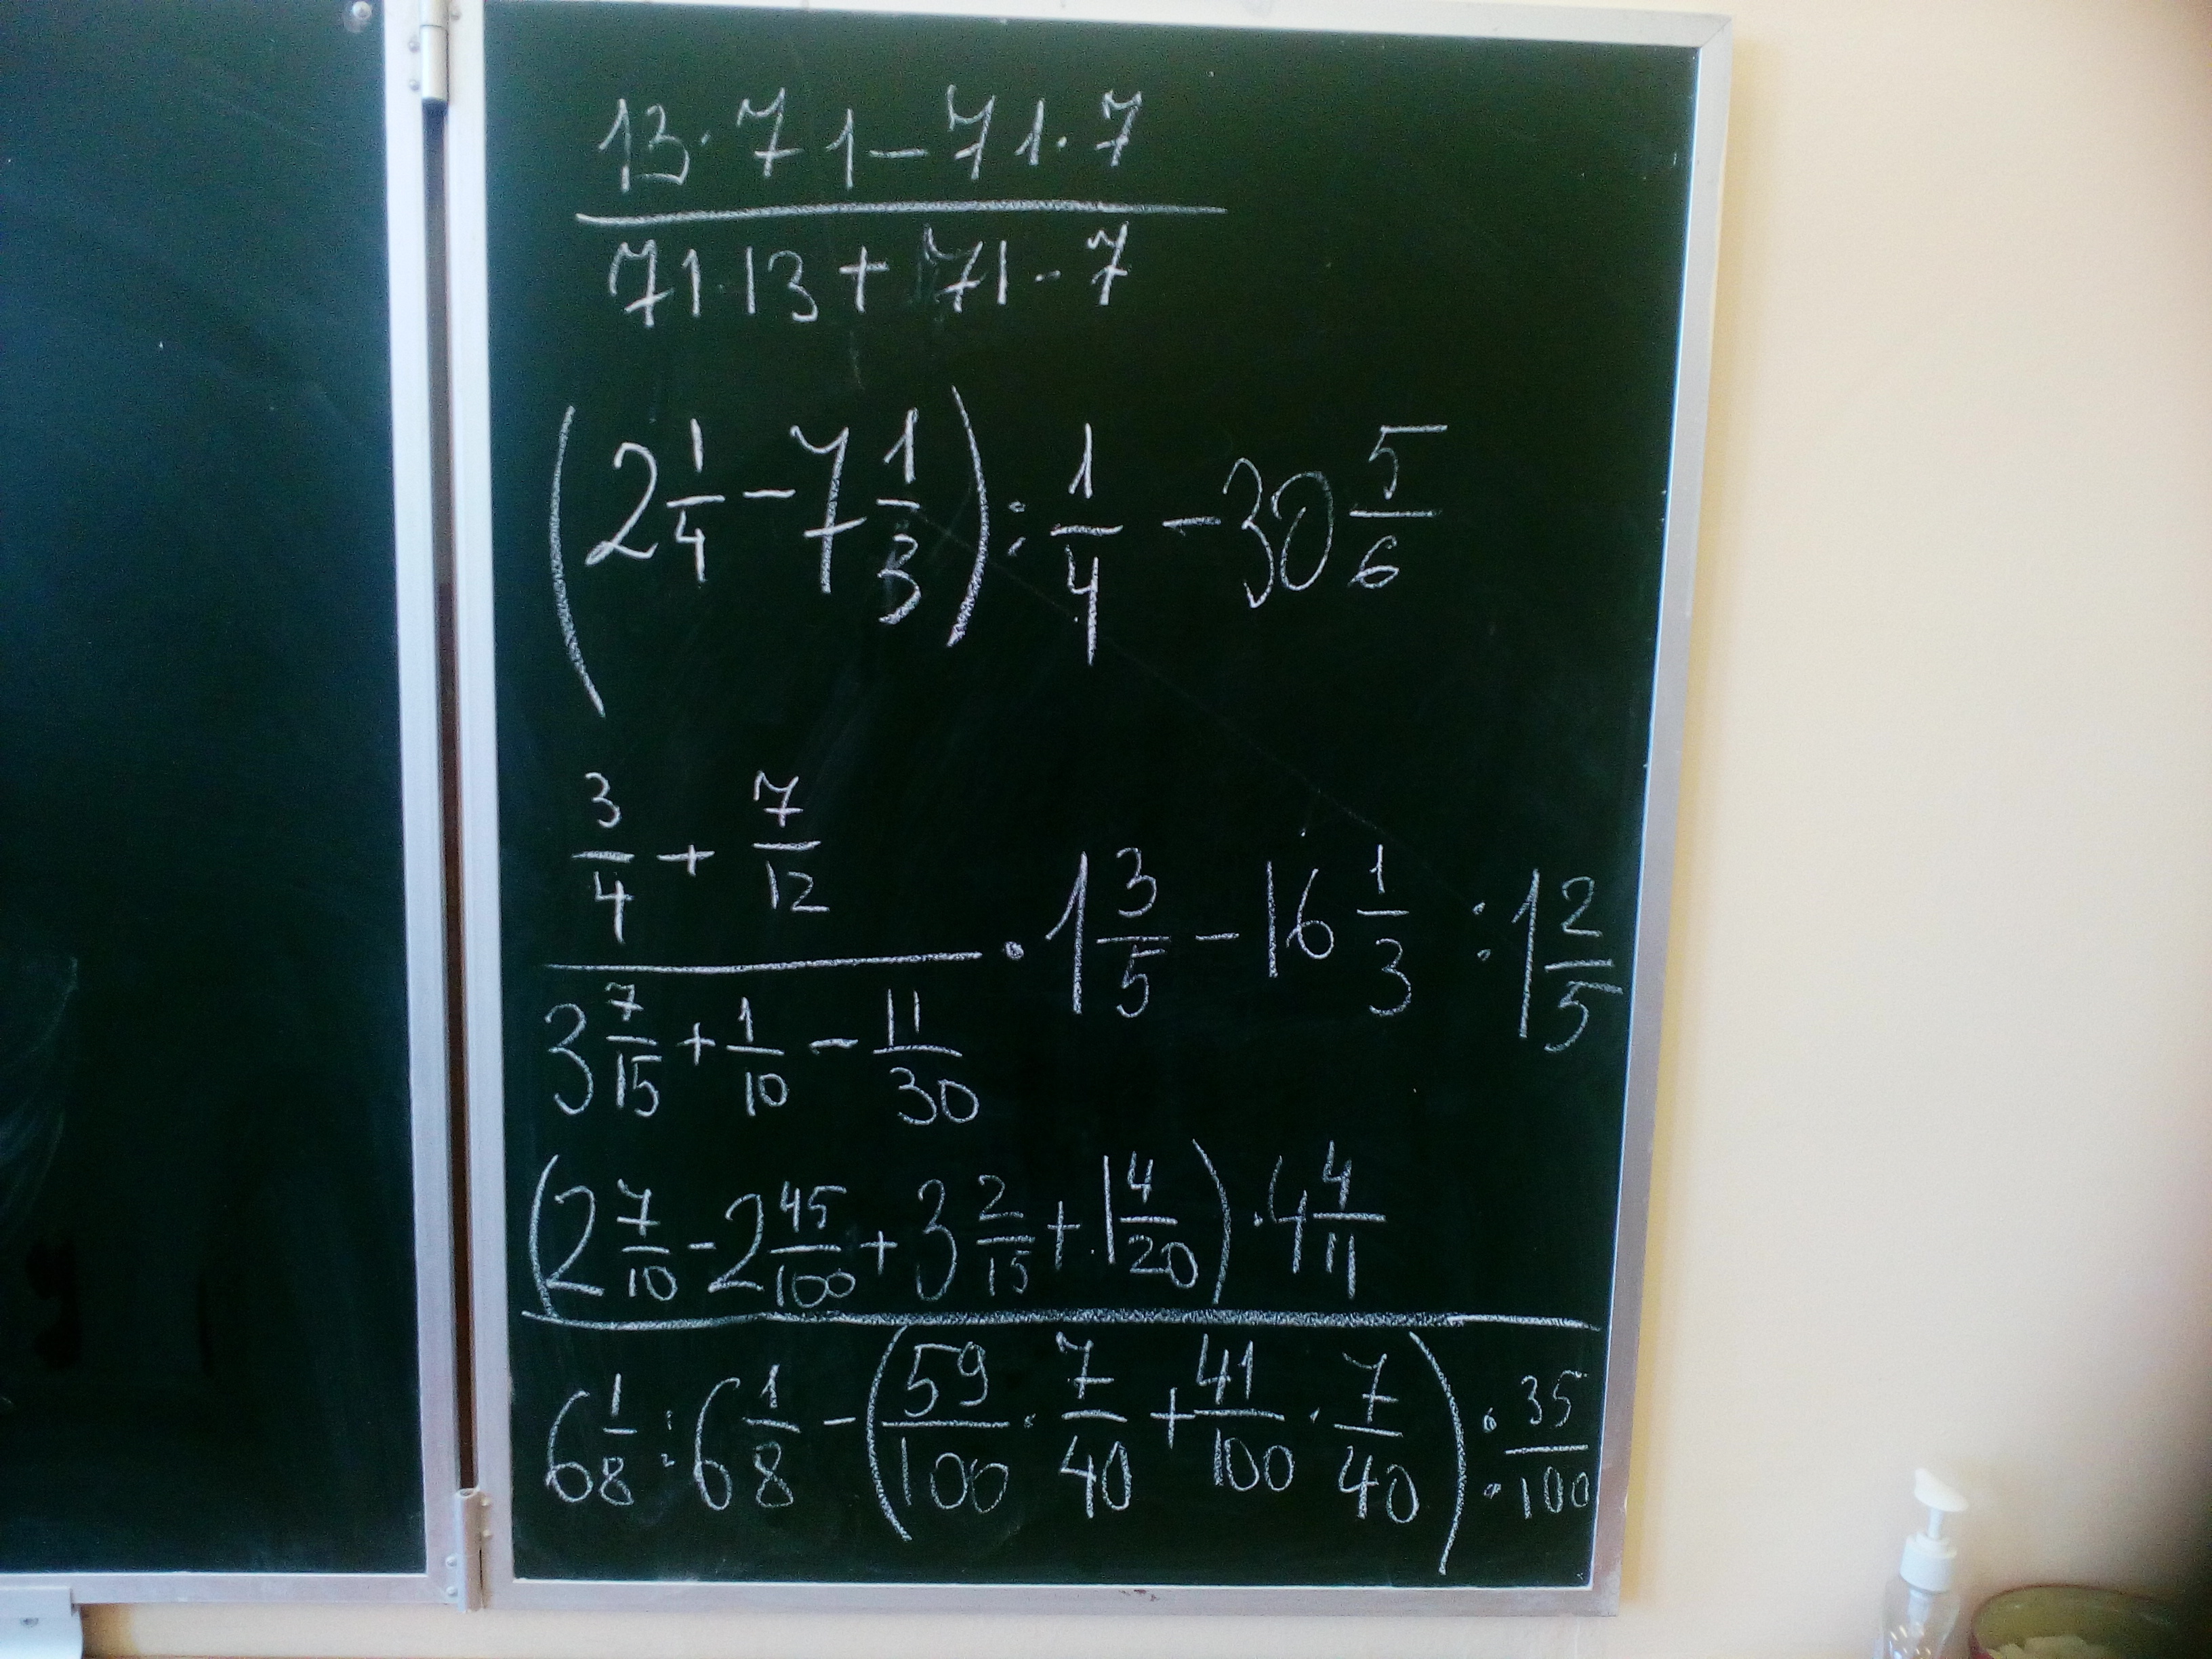 13·71-71·7
71·13+71·7
(2 1/4 - 7 1/3) : 1/4 - 30 5/6
3/4 + 7/12
· 1 3/5 - 16 1/3 : 1 2/5
3 7/15 + 1/10 - 11/30
(2 7/10 - 2 45/100 + 3 2/15 + 1 4/20) · 4 4/11
6 1/8 : 6 1/8 - (59/100 · 7/40 + 41/100 · 7/40) : 35/100